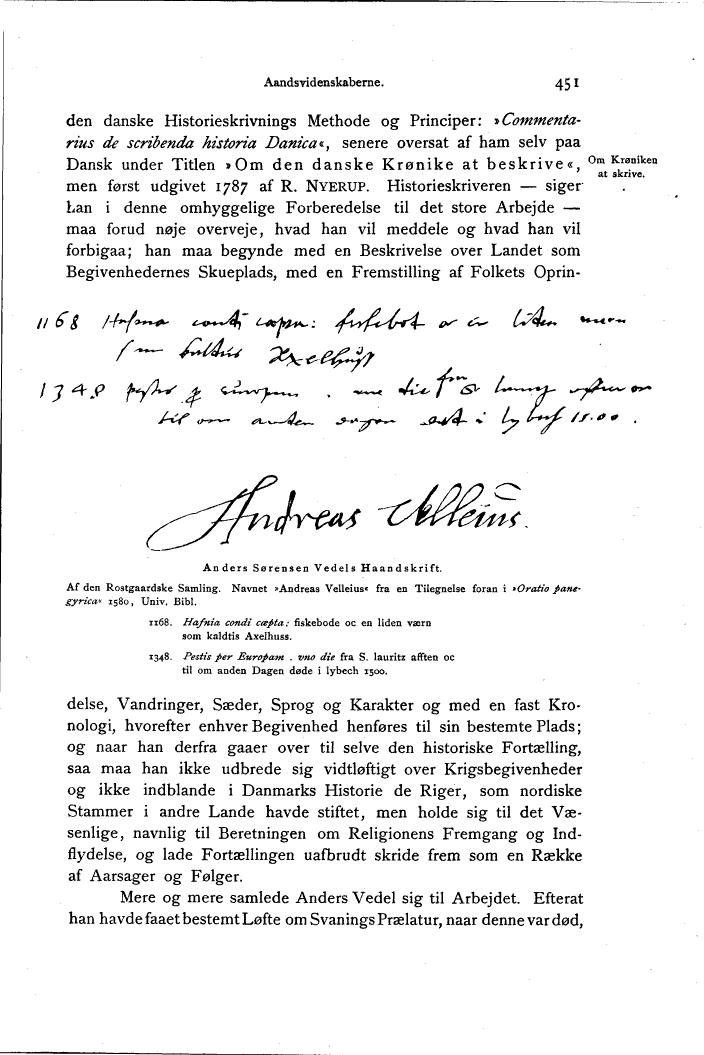 Aandsvidenskaberne. 451
den danske Historieskrivnings Methode og Principer: »Commenta-
rius de scribenda historia Danica«, senere oversat af ham selv paa
Dansk under Titlen »Om den danske Krønike at beskrive«,
Om Krøniken
at skrive.
men først udgivet 1787 af R. NYERUP. Historieskriveren — siger
han i denne omhyggelige Forberedelse til det store Arbejde —
maa forud nøje overveje, hvad han vil meddele og hvad han vil
forbigaa; han maa begynde med en Beskrivelse over Landet som
Begivenhedernes Skueplads, med en Fremstilling af Folkets Oprin-
1168 Hafnia condi cæpta: fiskebode oc en liden værn
som kaldtis Axelhuss
1348 pestis per europam . vno die fra S. lauritz afften oc
til om anden dagen døde i lybech 1500.
Andreas Velleius.
Anders Sørensen Vedels Haandskrift.
Af den Rostgaardske Samling. Navnet »Andreas Velleius« fra en Tilegnelse foran i »Oratio pane-
gyrica« 1580, Univ. Bibl.
1168. Hafnia condi cæpta: fiskebode oc en liden værn
som kaldtis Axelhuss.
1348. Pestis per Europam . vno die fra S. lauritz afften oc
til om anden Dagen døde i lybech 1500.
delse, Vandringer, Sæder, Sprog og Karakter og med en fast Kro-
nologi, hvorefter enhver Begivenhed henføres til sin bestemte Plads;
og naar han derfra gaaer over til selve den historiske Fortælling,
saa maa han ikke udbrede sig vidtløftigt over Krigsbegivenheder
og ikke indblande i Danmarks Historie de Riger, som nordiske
Stammer i andre Lande havde stiftet, men holde sig til det Væ-
senlige, navnlig til Beretningen om Religionens Fremgang og Ind-
flydelse, og lade Fortællingen uafbrudt skride frem som en Række
af Aarsager og Følger.
Mere og mere samlede Anders Vedel sig til Arbejdet. Efterat
han havde faaet bestemt Løfte om Svanings Prælatur, naar denne var død,